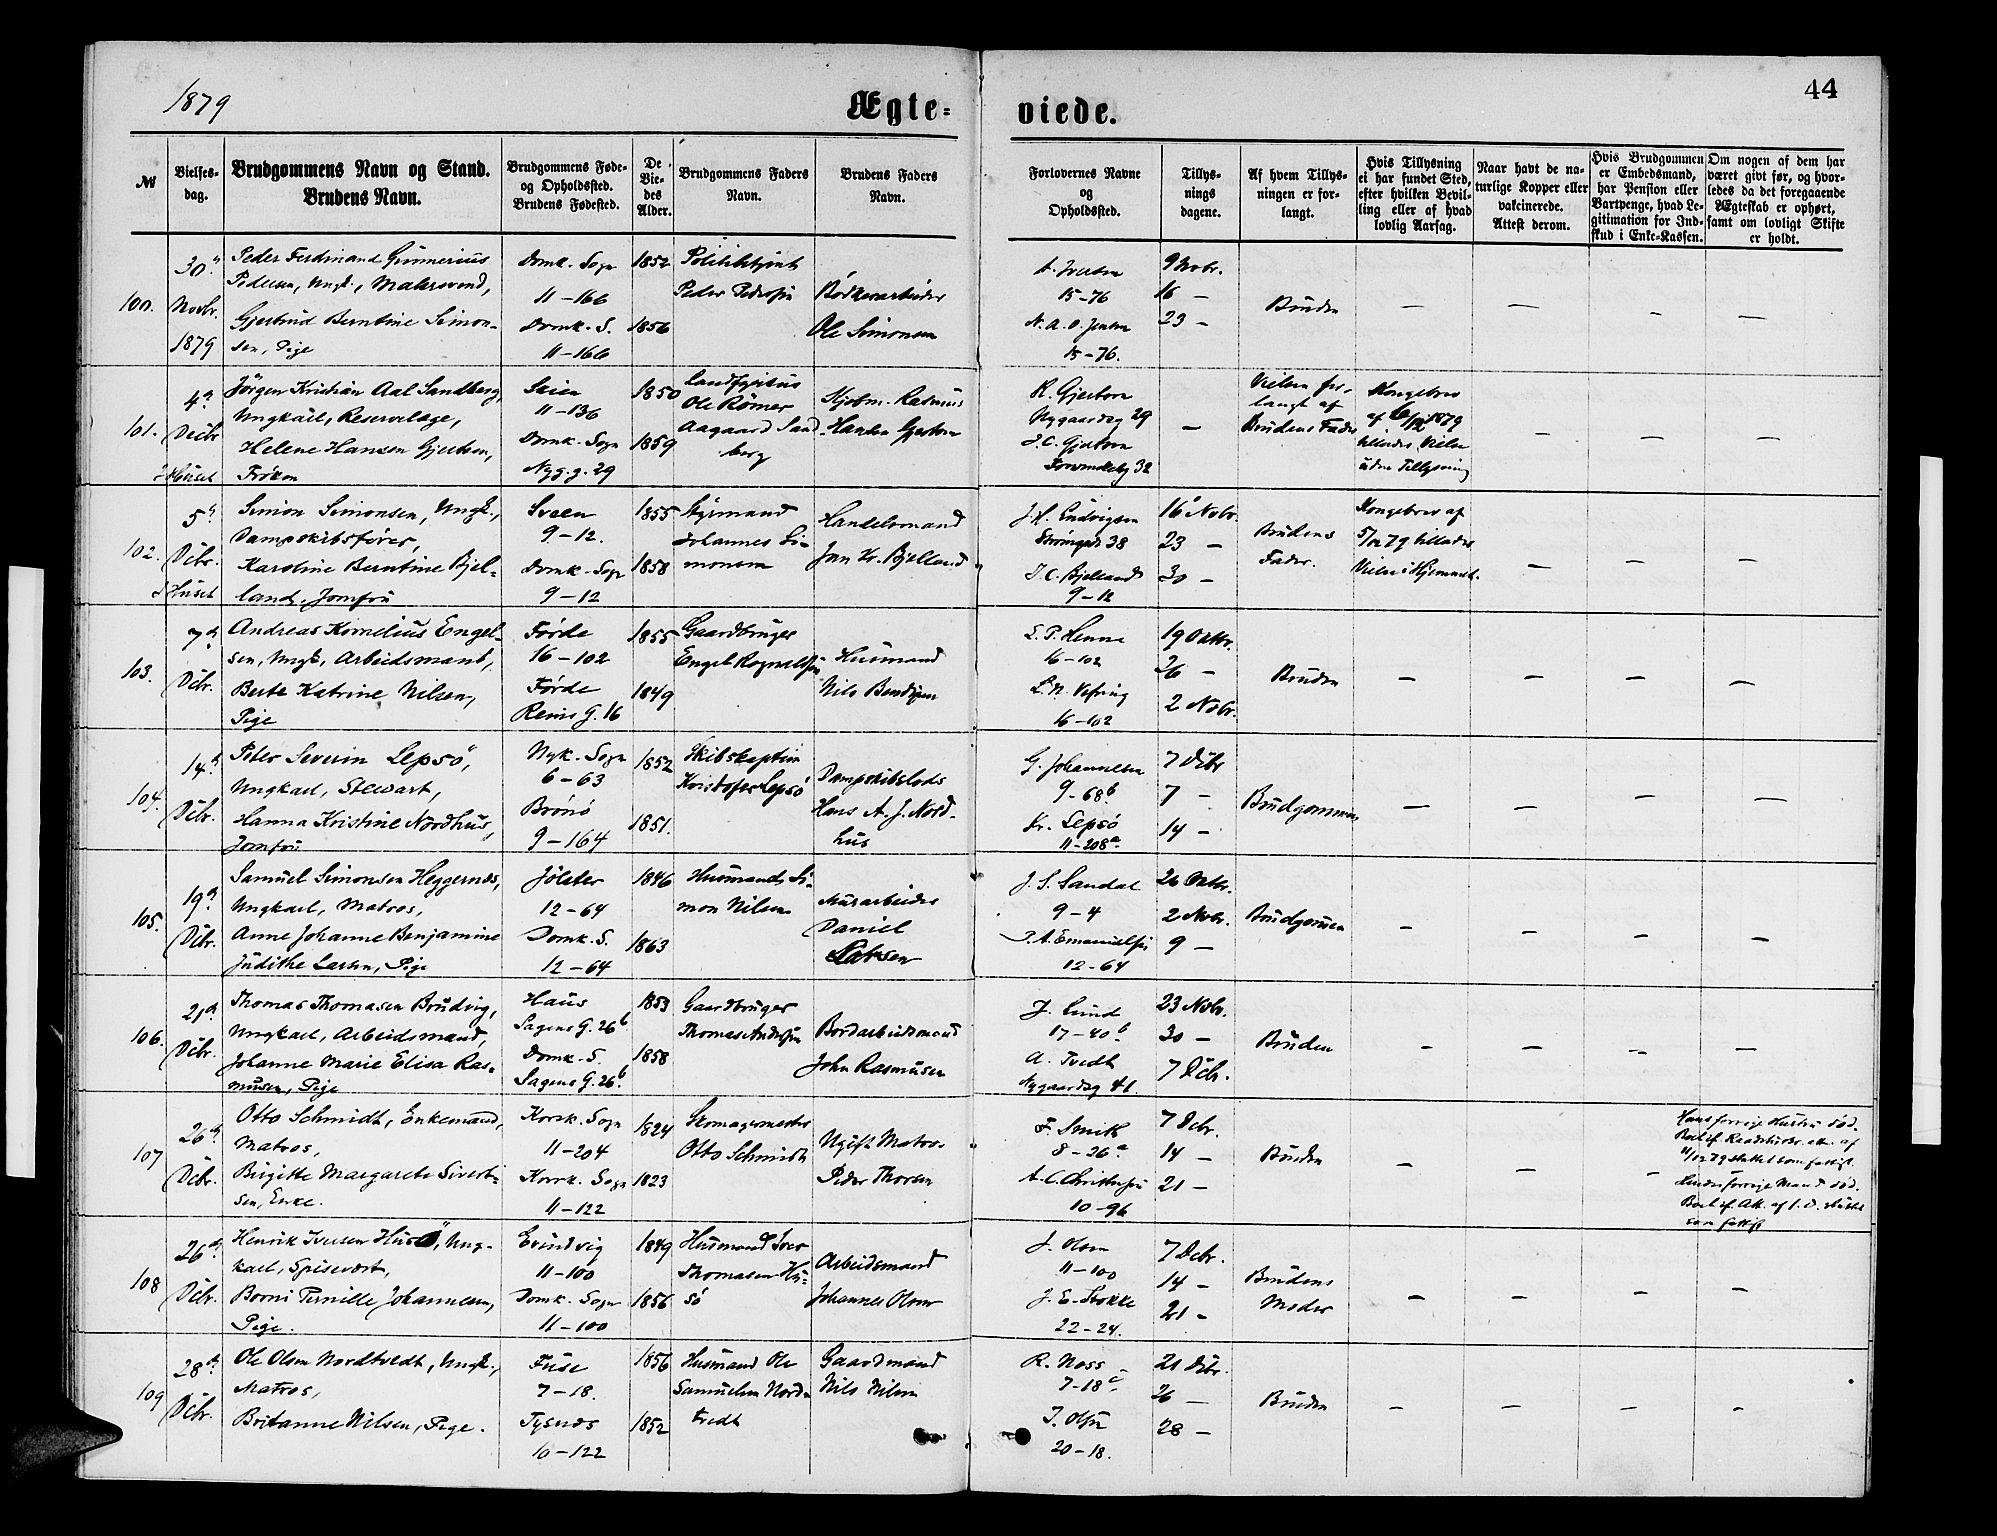 1879
Ægte-
viede.
44
№
Vielses-
dag.
Brudgommens Navn og Stand.
Brudens Navn.
Brudgommens Føde-
og Opholdssted.
Brudens Fødested.
De
Vie-
des
Alder.
Brudgommens Faders
Navn.
Brudens Faders
Navn.
Forlovernes Navne
og
Opholdssted.
Tillys-
nings
dagene.
Af hvem Tillys-
ningen er for-
langt.
Hvis Tillysning
ei har fundet Sted,
efter hvilken Bevil-
ling eller af hvad
lovlig Aarsag.
Naar havt de na-
turlige Kopper eller
vakcinerede.
Attest derom.
Hvis Brudgommen
er Embedsmand,
har Pension eller
Vartpenge, hvad Le-
gitimation for Ind-
skud i Enke-Kassen.
Om nogen af dem har
været givt før, og hvor-
ledes da det foregaaende
Ægteskab er ophørt,
samt om lovligt Skifte
er holdt.
100.
30
Novbr.
1879
Peder Ferdinand Gunnerius
Pedersen, Ungk., Malersvend,
Gjertrud Berntine Simon-
sen, Pige
Domk. Sogn
11-166
Domk. S.
11-166
1852
1856
Politibetjent
Peder Pedersen
Bødkerarbeider
Ole Simonsen
A. Iversen
15-76
N. A. O. Jensen
15-76.
9 Novbr.
16 —
23 —
Bruden
— — — —
101.
4
Decbr
i Huset
Jörgen Kristian Aal Sandberg,
Ungkarl, Reservelæge,
Helene Hansen Gjertsen,
Frøken
Skien
11-136
Domk. Sogn
Nyg.g. 29
1850
1859
Landfysikus
Ole Römer
Aagaard Sand-
berg
Kjøbm. Rasmus
Hansen Gjertsen
R. Gjertsen
Nygaardsg 29
J. C. Gjertsen
32
—
Vielsen for-
langt af
Brudens Fader
Kongebrev
af 6/12 1879
tillades Vielse
uden Tillysning
— — —
102.
5
Dcbr.
i Huset
Simon Simonsen, Ungk.,
Dampskibsfører,
Karoline Berntine Bjel-
land, Jomfru
Sveen
9-12.
Domk. Sogn
9-12
1855
1858
Styrmand
Johannes Si-
monsen
Handelsmand
Jan Kr. Bjelland
J. H. Ludvigsen
Strangeh 38
J. C. Bjelland
9-12
16 Novbr.
23 —
30 —
Brudens
Fader.
Kongebrev af
5/12 79 tillades
Vielse i Hjemmet.
— — —
103.
7
Dcbr.
Andreas Kornelius Engel-
sen, Ungk, Arbeidsmand,
Berte Katrine Nilsen,
Pige
Førde
16-102
Førde
Reins G. 16
1855
1849
Gaardbruger
Engel Rognaldsen
Husmand
Nils Bendixen
L. P. Henne
16-102
L. N. Vefring
16-102
19 Oktbr.
26 —
2 Novbr.
Bruden
— — — —
104.
14
Dcbr.
Peter Severin Lepsö,
Ungkarl, Stewart,
Hanna Kristine Nordhus,
Jomfru
Nyk. Sogn
6-63
Brönö
9-164
1852
1851.
Skibskaptein
Kristofer Lepsö
Dampskibslods
Hans A. J. Nord-
hus
G. Johannesen
9-68b.
Kr. Lepsö
11-208a.
7 Dcbr
7 —
14 —
Brudgommen
— — — —
105.
19
Dcbr.
Samuel Simonsen Heggernæs,
Ungkarl, Matros,
Anne Johanne Benjamine
Judithe Larsen, Pige
Jölster
12-64
Domk. S.
12-64
1846
1863
Husmand Si-
mon Nilsen
Murarbeider
Daniel
Larsen
J. S. Sandal
9-4
P. A. Emanuelsen
12-64
26 Oktbr.
2 Novbr.
9 —
Brudgommen
— — — —
106.
21
Dcbr.
Thomas Thomasen Brudvig,
Ungkarl, Arbeidsmand,
Johanne Marie Elisa Ras-
musen, Pige
Haus
Sagens G. 26b.
Domk. S.
Sagens G. 26b.
1853
1858
Gaardbruger
Thomas Andersen
Bordarbeidsmand
John Rasmusen
J. Lund
17-40b.
A. Tvedt
Nygaardsg 41.
23 Novbr.
30 —
7 Dcbr.
Bruden
— — — —
107
26
Dcbr.
Otto Schmidt, Enkemand,
Matros,
Birgitte Margarete Sivert-
sen, Enke.
Korsk. Sogn
11-204
Korsk. Sogn
11-122
1824
1823
Skomagermester
Otto Schmidt
Ugift Matros
Peder Thorsen
F. Smith
8-26a.
A. C. Christensen
10-96
7 Dcbr.
14 —
21 —
Bruden
— — —
Hans forrige Hustru död.
Boet ef. Raadstubr. att. af
11/12 79 sluttet som fattigt.
Hendes forrige Mand död.
Boet ef. Att. af s. D. sluttet
som fattigt
108
26
Dcbr.
Henrik Iversen Husö, Ung-
karl, Spisevært,
Borni Pernille Johannesen,
Pige.
Evindvig
11-100
Domk. Sogn
11-100
1849
1856
Husmand Iver
Thomasen Hu-
sö
Arbeidsmand
Johannes Olsen
J. Olsen
11-100
J. E. Stokke
22-24.
7 Dcbr.
14 —
21 —
Brudens
Moder
— — — —
109
28
Dcbr.
Ole Olsen Nordtvedt, Ungk.,
Matros,
Britanne Nilsen, Pige.
Fuse
7-18.
Tysnæs
10-122
1856
1852
Husmand Ole
Samuelsen Nord-
tvedt
Gaardmand
Nils Nilsen
R. Noss
7-18c.
J. Olsen
20-18.
21 Dcbr.
26 —
28 —
Bruden
— — — —